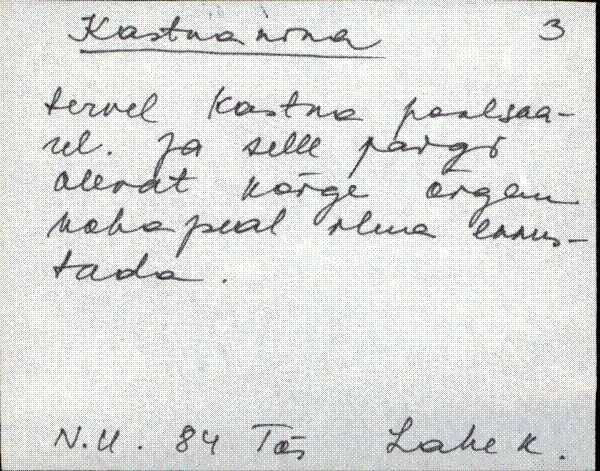 Kastna nina 3
tervel Kastna poolsaa-
rel. Ja selle pargi
olevat kõrge õrgem
koha peal ilma ennus-
tada.
N.U. 84 Tõs Lahe k.